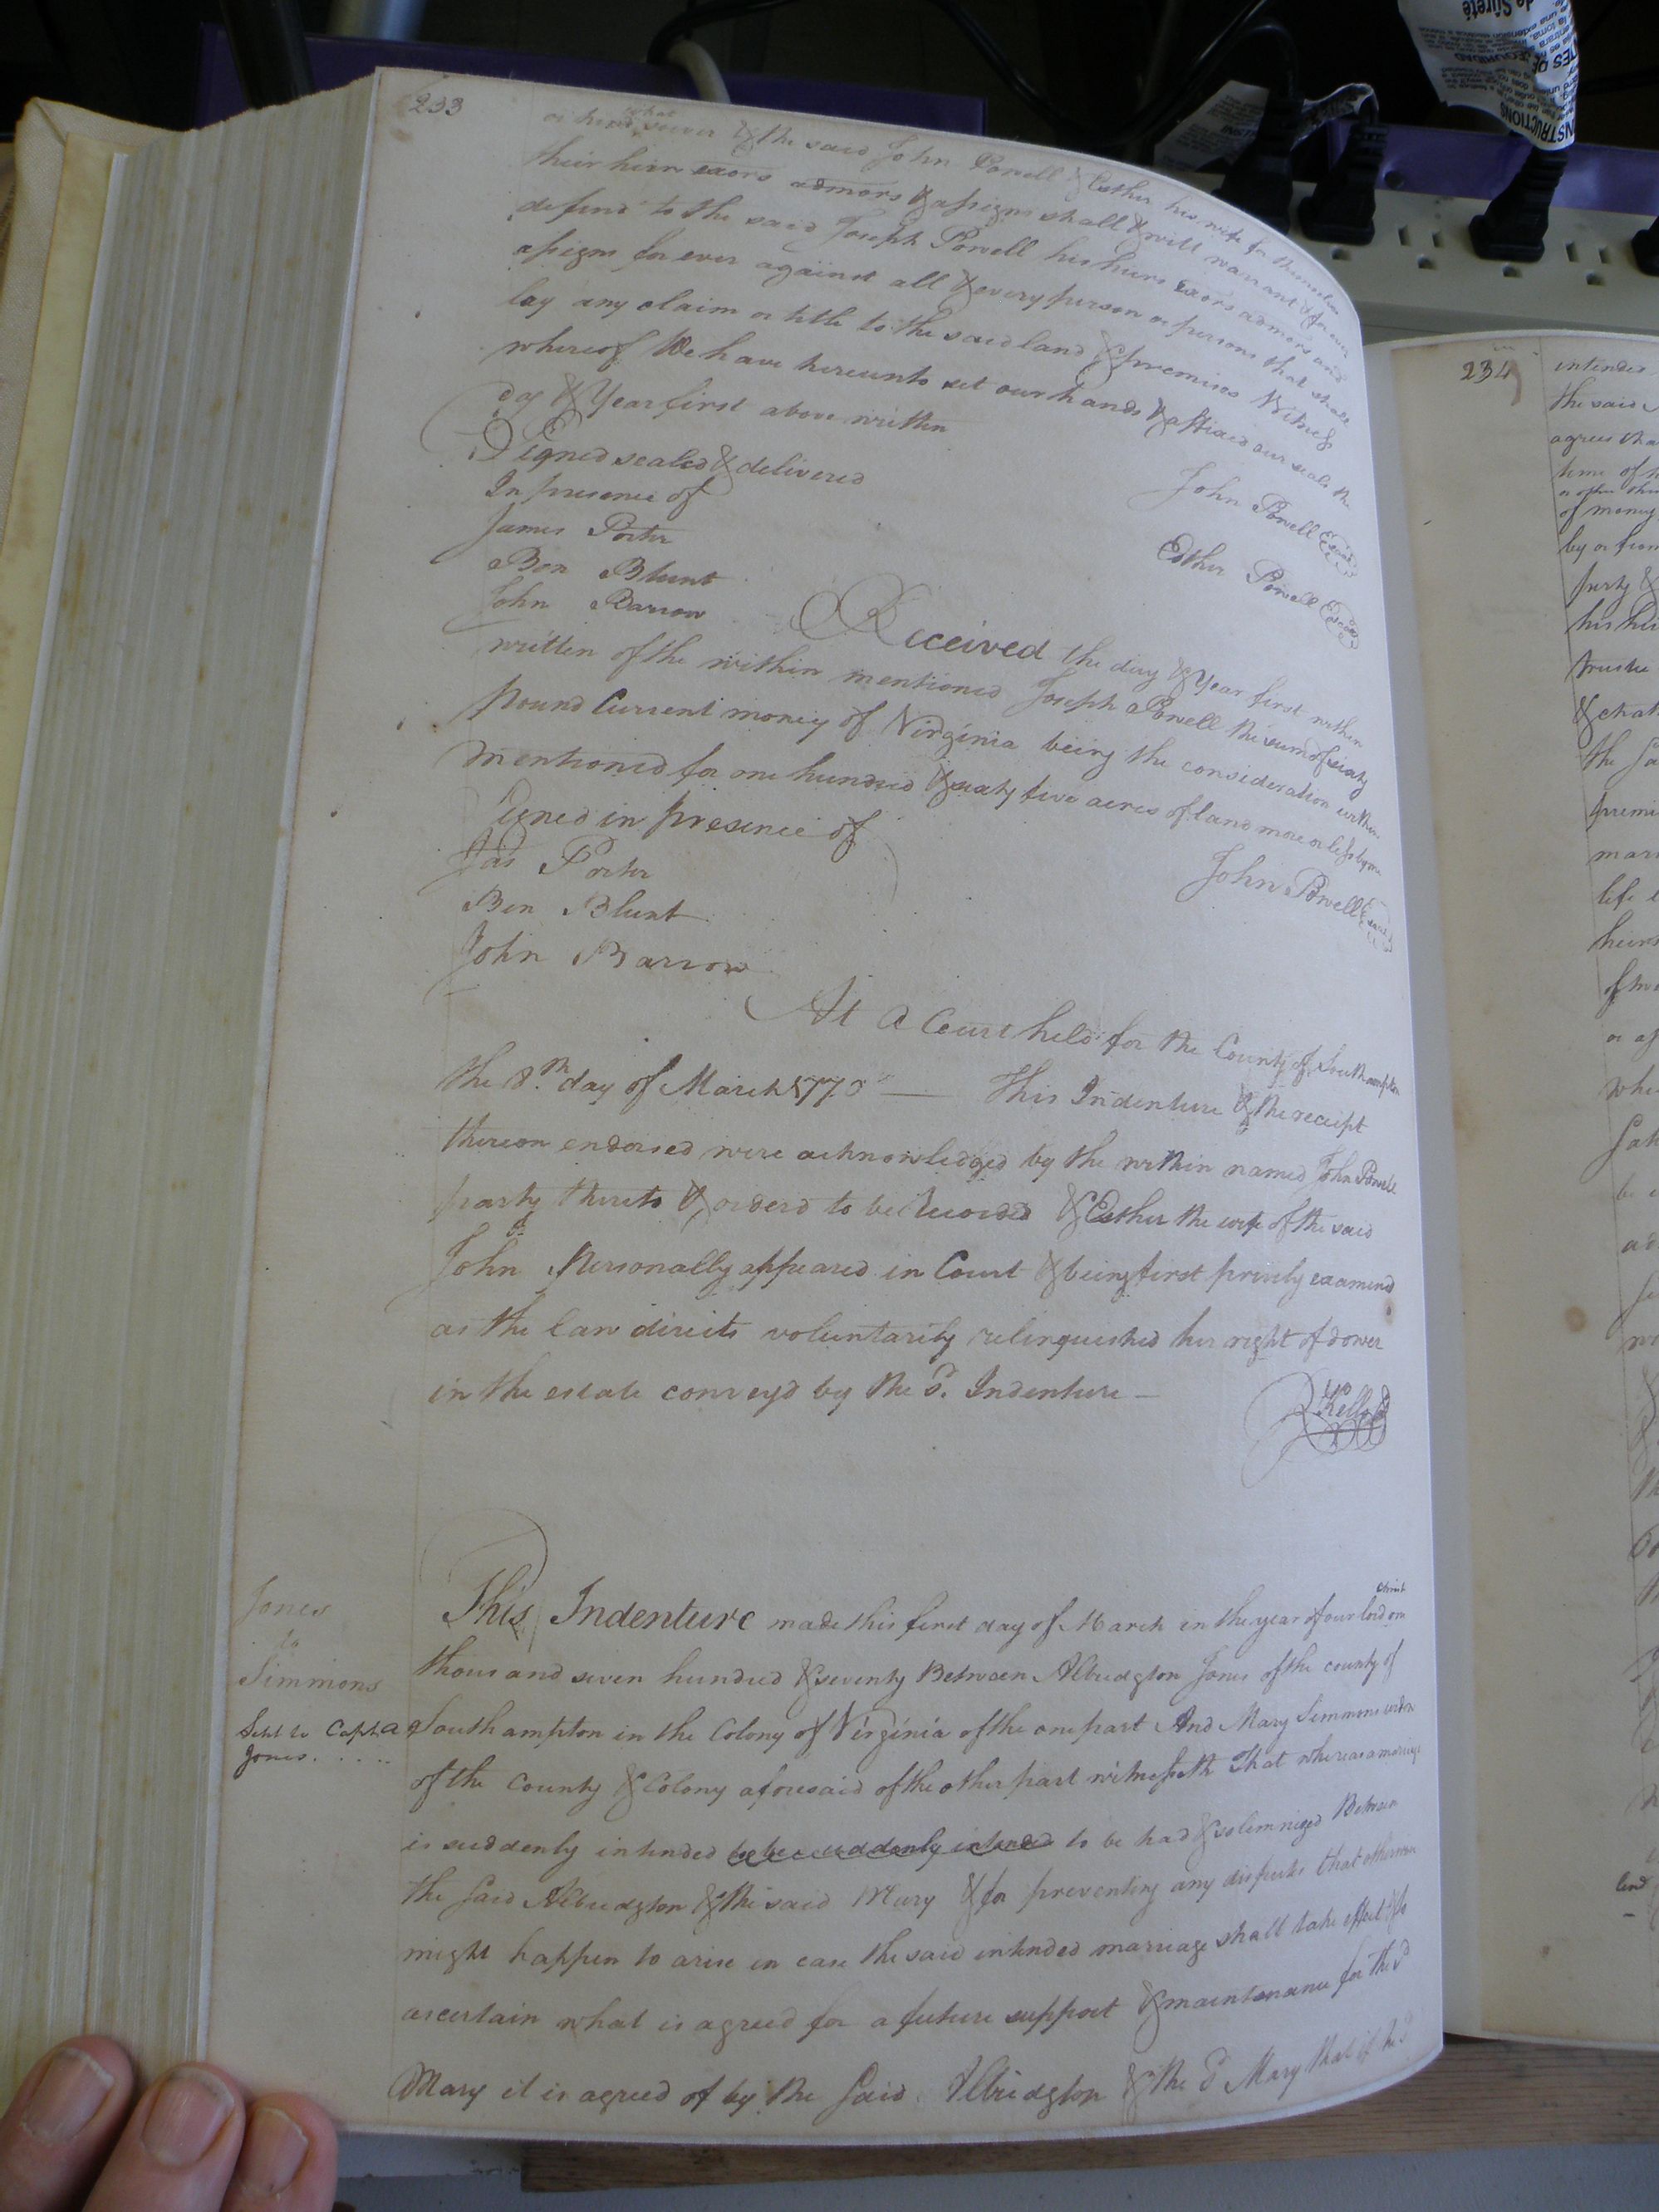 233
or hered whatsoever & the said John Powell & Esther his wife for themselves
their heirs exors admors & assigns shall & will warrant & for ever
defend to the said Joseph Powell his heirs exors admors and
assigns for ever against all & every person or persons that shall
lay any claim or title to the said land & premises Witness
whereof We have hereunto set our hands & affixed our seals the
day & Year first above written
Signed sealed & delivered
In presence of
John Powell Seal
James Porter
Esther Powell Seal
Ben Blunt
John Barrow
Received the day & Year first within
written of the within mentioned Joseph Powell the sum of sixty
pound Current money of Virginia being the consideration within
mentioned for one hundred & sixty five acres of land more or less by me
Signed in presence of
John Powell Seal
Jas Porter
Ben Blunt
John Barrow
At a Court held for the County of Southampton
the 8th. day of March 1770 — This Indenture & the receipt
thereon endorsed were acknowledged by the within named John Powell
party thereto & orderd to be Recorded & Esther the wife of the said
John Personally appeared in Court & being first privily examind
as the Law directs voluntarily relinquished her right of dower
in the estate conveyd by the sd. Indenture —
Jones
to
Simmons
Deld to Capt A
Jones. . . . .
This Indenture made this first day of March in the year of our lord Christ one
thousand seven hundred & seventy Between Albridgton Jones of the county of
Southampton in the Colony of Virginia of the one part And Mary Simmons widow
of the County & Colony aforesaid of the other part witnesseth That whereas a marriage
is suddenly intended to be suddenly intended to be had & solemnized Between
the said Albridgton & the said Mary & for preventing any disputes that otherwise
might happen to arise in case the said intended marriage shall take effect & to
ascertain what is agreed for a future support & maintenance for the sd
Mary it is agreed of by the said Albridgton & the sd Mary that if the sd
234
intended
the said
agrees tha
time of
of money
by or from
party &
his hei
trustee
& chat
the sa
premi
mari
life
heirs
or as